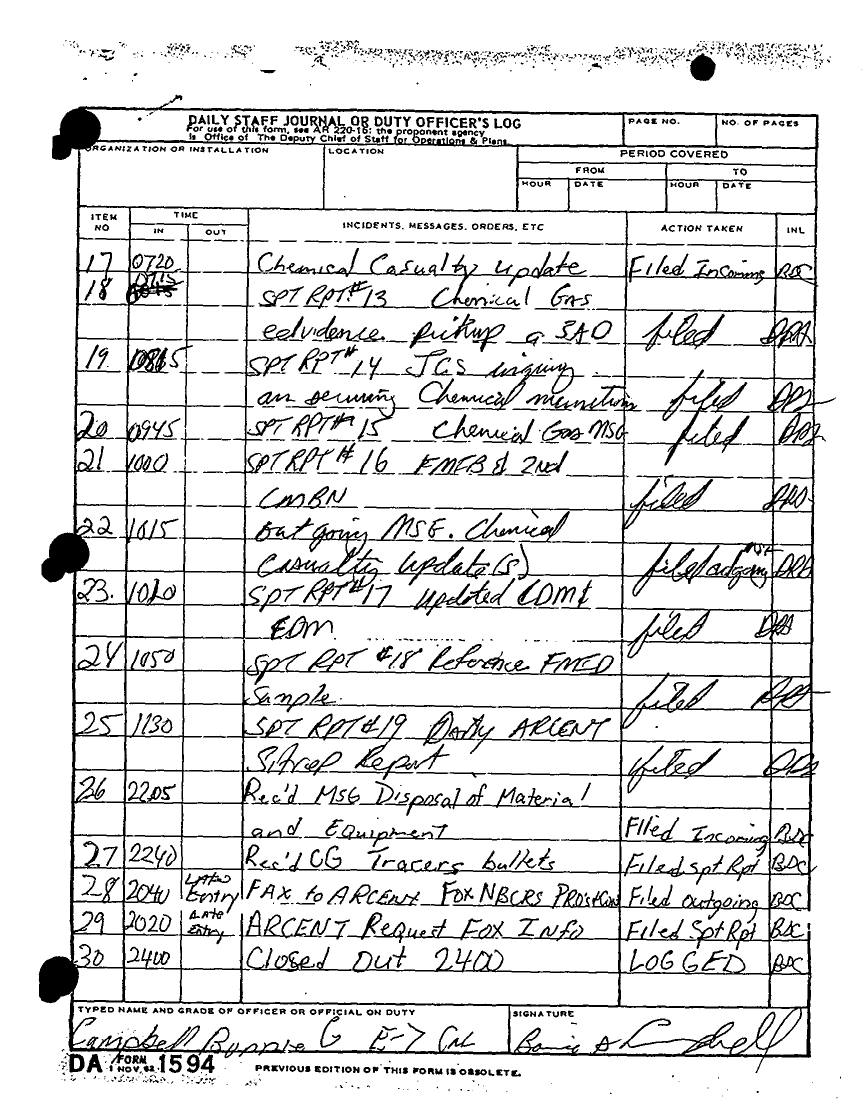 DAILY STAFF JOURNAL OR DUTY OFFICER'S LOG
For use of this form, see AR 220-15: the proponent agency
is Office of The Deputy Chief of Staff for Operations & Plans.
PAGE NO. NO. OF PAGES
ORGANIZATION OR INSTALLATION LOCATION PERIOD COVERED
FROM TO
HOUR DATE HOUR DATE
ITEM NO TIME INCIDENTS, MESSAGES, ORDERS, ETC ACTION TAKEN INL
IN OUT
17 0720 Chemical Casualty update Filed Incoming BDC
18 0715 SPT RPT #13 Chemical GAS
pickup filed
19 SPT RPT # 14 JCS inquiry
on securing Chemical munitions filed
20 0945 SPT RPT # 15 Chemical Gas MSG filed
21 1000 SPT RPT # 16 2nd
CMBN filed
22 1015 out going MSG. Chemical
Casualty update(s) filed outgoing
23. SPT RPT #17 updated
EDM filed
24 1050 SPT RPT #18 Reference FMED
Sample filed
25 1130 SPT RPT #19 Daily ARCENT
Sitrep Report filed
26 2205 Rec'd MSG Disposal of Material
and Equipment Filed Incoming BDC
27 2240 Rec'd CG Tracers bullets Filed Spt Rpt BDC
28 2040 Late Entry FAX to ARCENT Fox NBCRS Filed outgoing BDC
29 2020 Late Entry ARCENT Request Fox Info Filed Spt Rpt BDC
30 2400 Closed Out 2400 LOGGED BDC
TYPED NAME AND GRADE OF OFFICER OR OFFICIAL ON DUTY SIGNATURE
Campbell E-7 Campbell
DA FORM 1 NOV. 62 1594 PREVIOUS EDITION OF THIS FORM IS OBSOLETE.